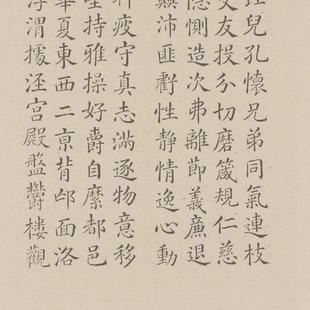 比兒孔懷兄弟同氣連枝
交友投分切磨箴規仁慈
隱惻造次弗離節義廉退
顛沛匪虧性靜情逸心動
神疲守真志滿逐物意移
堅持雅操好爵自縻都邑
華夏東西二亰背邙面洛
浮渭據涇宮殿盤鬱樓觀